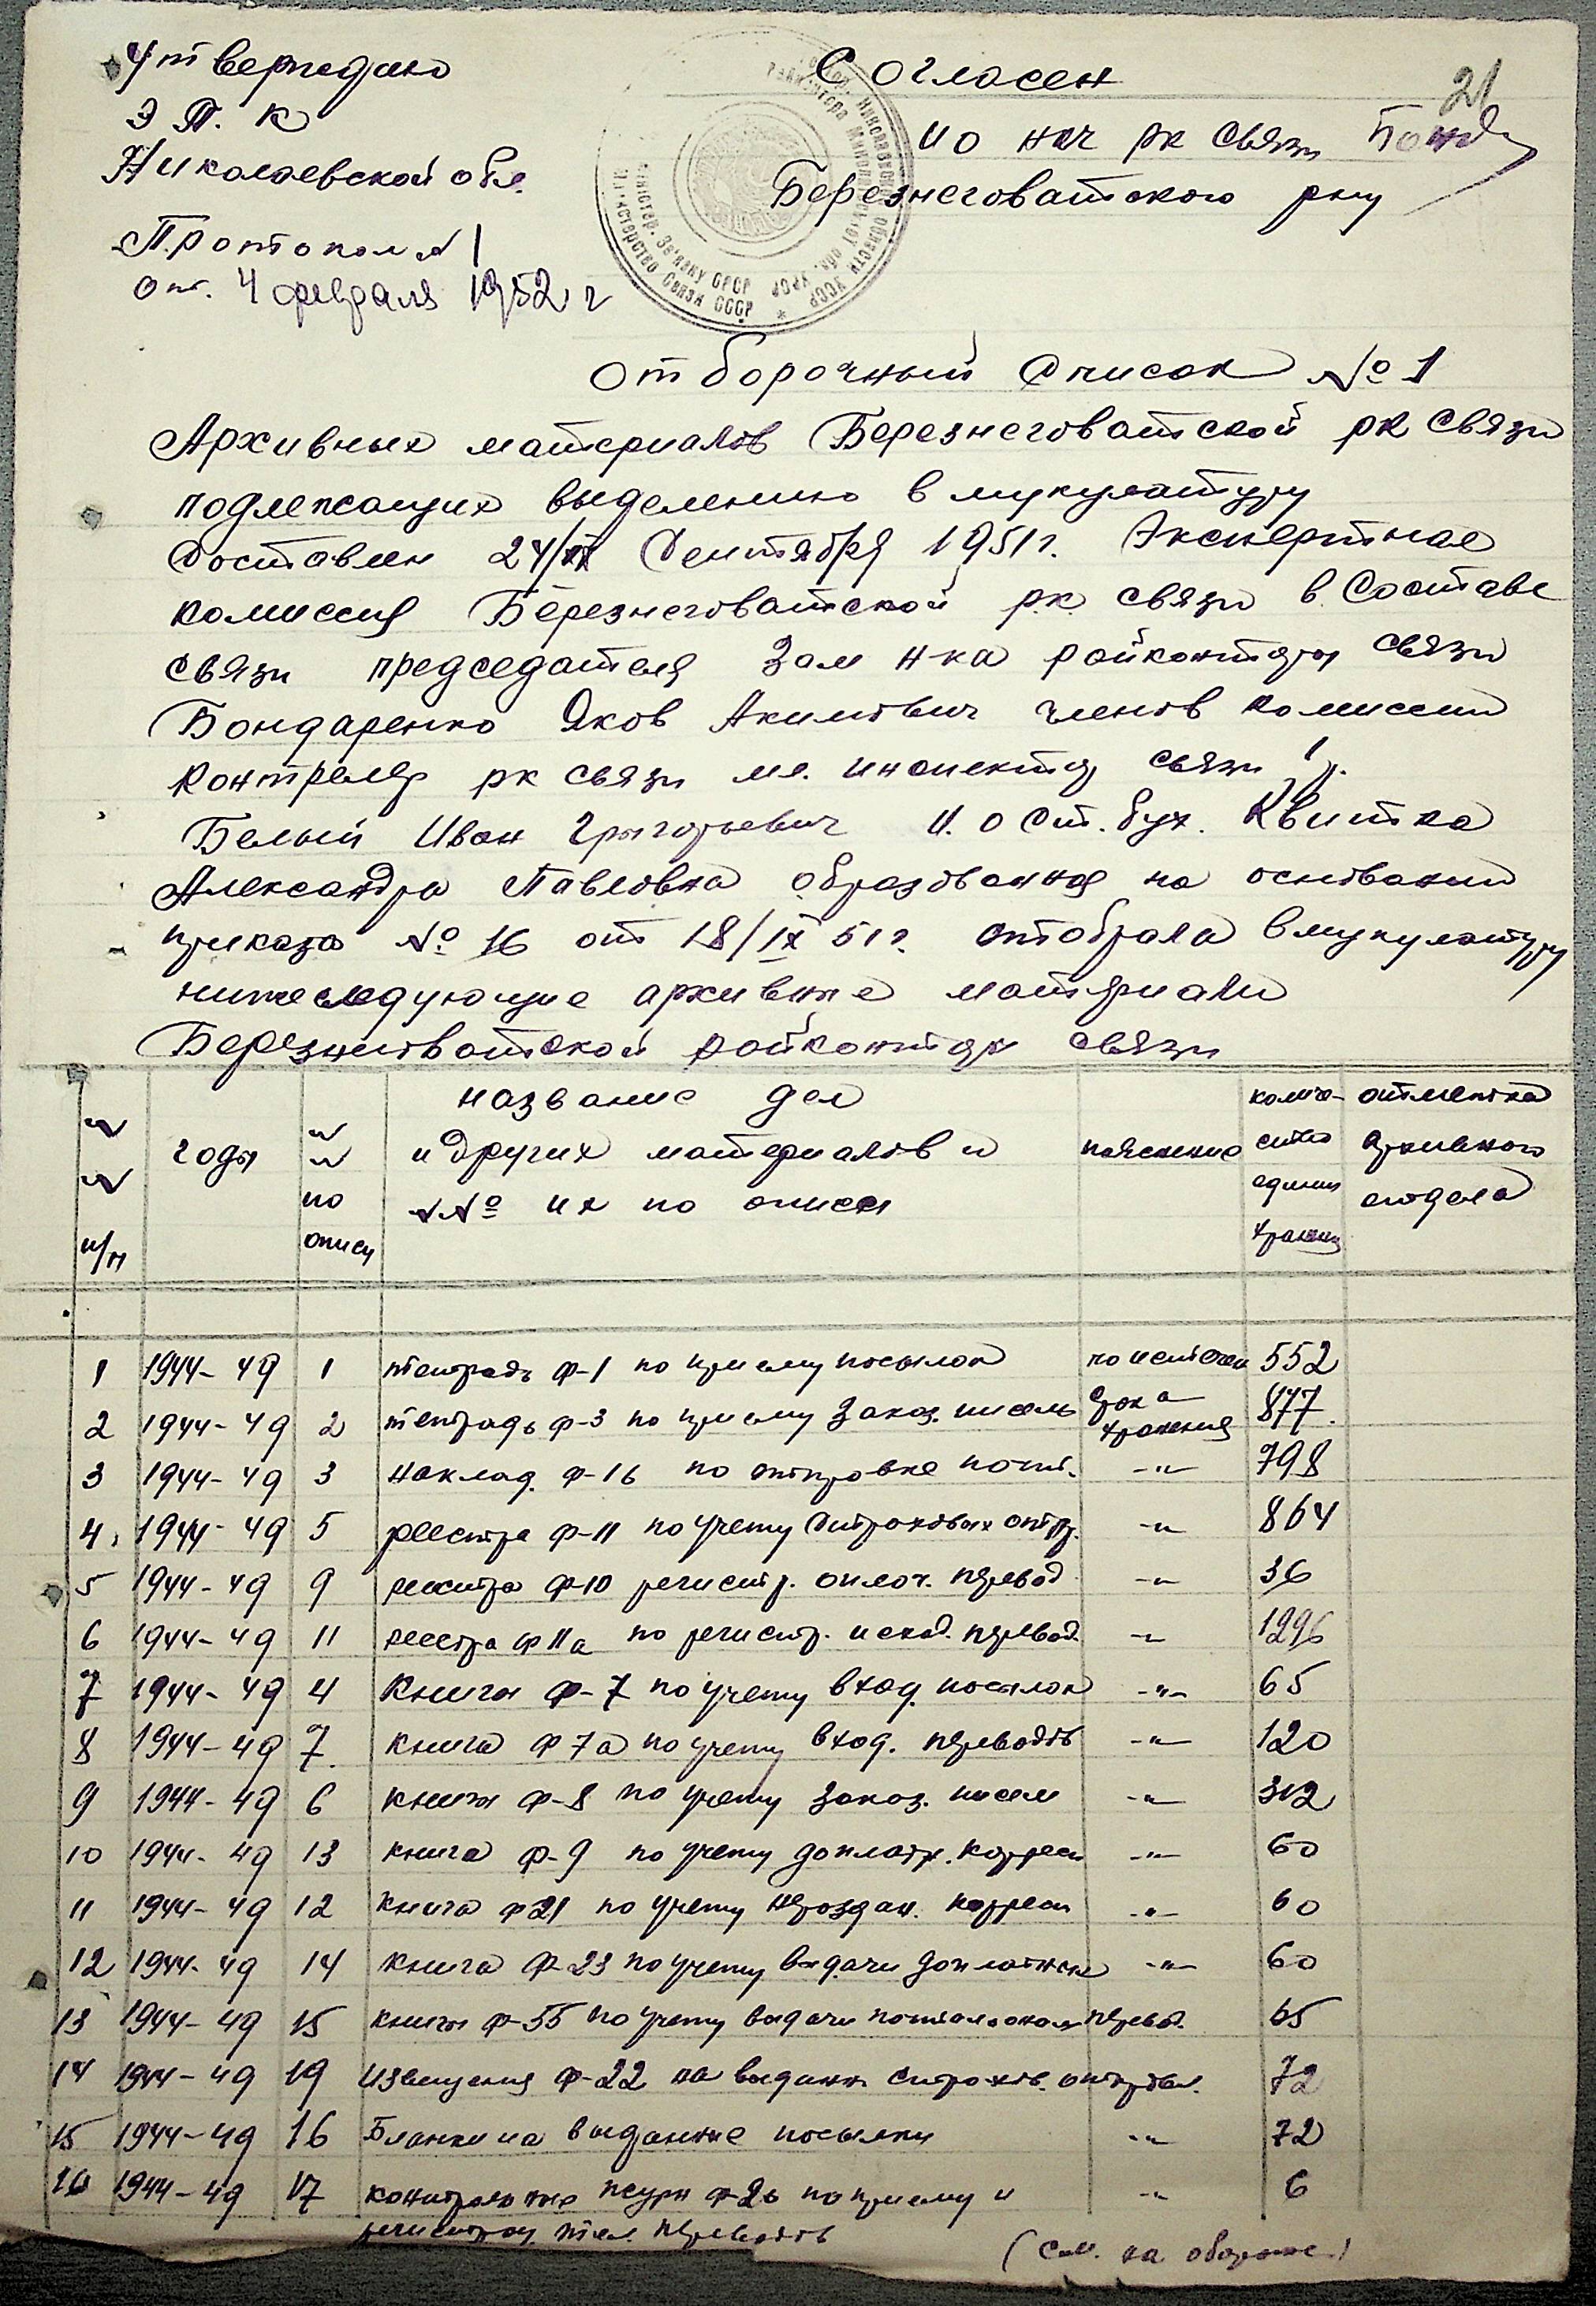 Утверждаю
Э П. К
Николаевской обл.
Протокол № 1
от. 4 февраля 1952 г
Согласен
21
ио нач рк связи
Березнеговатского рну
Министерство Связи СССР
Отборочный список № 1
Архивных материалов Березнеговатской рк связи
подлежащих выделению в мукулатуру
Составлен 24/IX Сентября 1951 г. Экспертная
комиссия Березнеговатской рк связи в Составе
связи председателя Зам н-ка райконторы связи
Бондаренко Яков Акимович членов комиссии
Контролер рк связи мл. инспектор связи
Белый Иван Григорьевич И. о Ст. бух. Квитка
Александра Павловна образованная на основании
приказа № 16 от 18/IX 51 г. отобрала в мукулатуру
нижеследующие архивные материалы
Березнеговатской райконторы связи
№ № п/п | годы | № № по описи | название дел и других материалов и №№ их по описи | пояснение | количество единиц хранения | отметка архивного отдела
1 1944-49 1 тетрадь ф-1 по приему посылок по истечен 552
2 1944-49 2 тетрадь ф-3 по приему заказ. писем срока хранения 877.
3 1944-49 3 наклад. ф-16 по отправке почт. -"- 798
4. 1944-49 5 реестра ф-11 по учету Страховых отпр. -"- 864
5 1944-49 9 реестра ф-10 регистр. оплач. перевод -"- 36
6 1944-49 11 реестра ф 11а по регистр. исход. перевод. -"- 1296
7 1944-49 4 Книги ф-7 по учету вход. посылок -"- 65
8 1944-49 7. книга ф 7а по учету вход. переводов -"- 120
9 1944-49 6 книги ф-8 по учету заказ. писем -"- 312
10 1944-49 13 книга ф-9 по учету доплатн. корресп -"- 60
11 1944-49 12 книга ф 21 по учету нероздан. корресп -"- 60
12 1944-49 14 книга ф-23 по учету выдачи доплатных -"- 60
13 1944-49 15 книги ф-55 по учету выдачи почтальонам перевод. 65
14 1944-49 19 извещения ф-22 на выдачи страхов. отправл. 72
15 1944-49 16 Бланки на выданные посылки -"- 72
16 1944-49 17 контрольные журн ф-26 по приему и -"- 6
регистрац. тел. переводов
(см. на обороте)